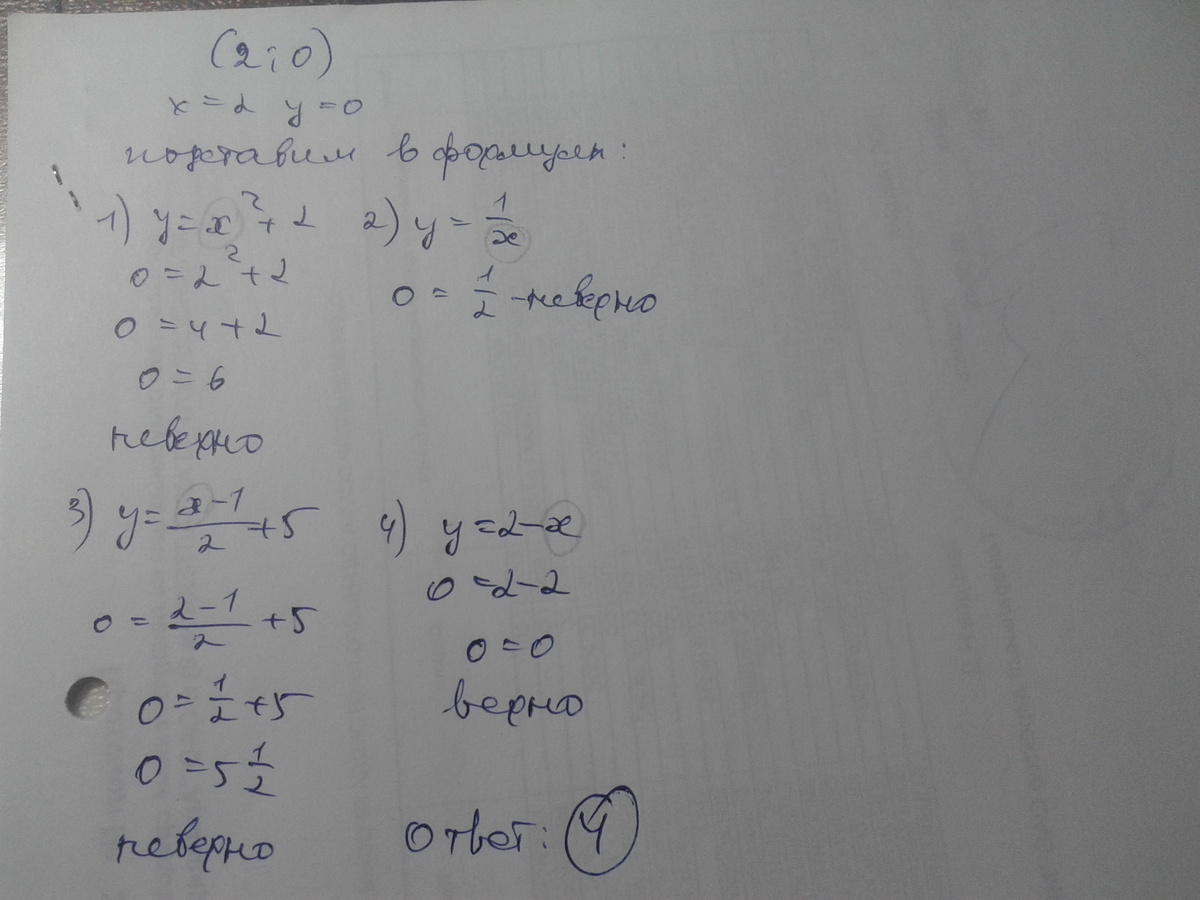 (2;0)
x=2 y=0
подставим в формулы:
1) y=x²+2
0=2²+2
0=4+2
0=6
неверно
2) y=1/x
0=1/2-неверно
3) y=(x-1)/2+5
0=(2-1)/2+5
0=1/2+5
0=5 1/2
неверно
4) y=2-x
0=2-2
0=0
верно
Ответ: 4